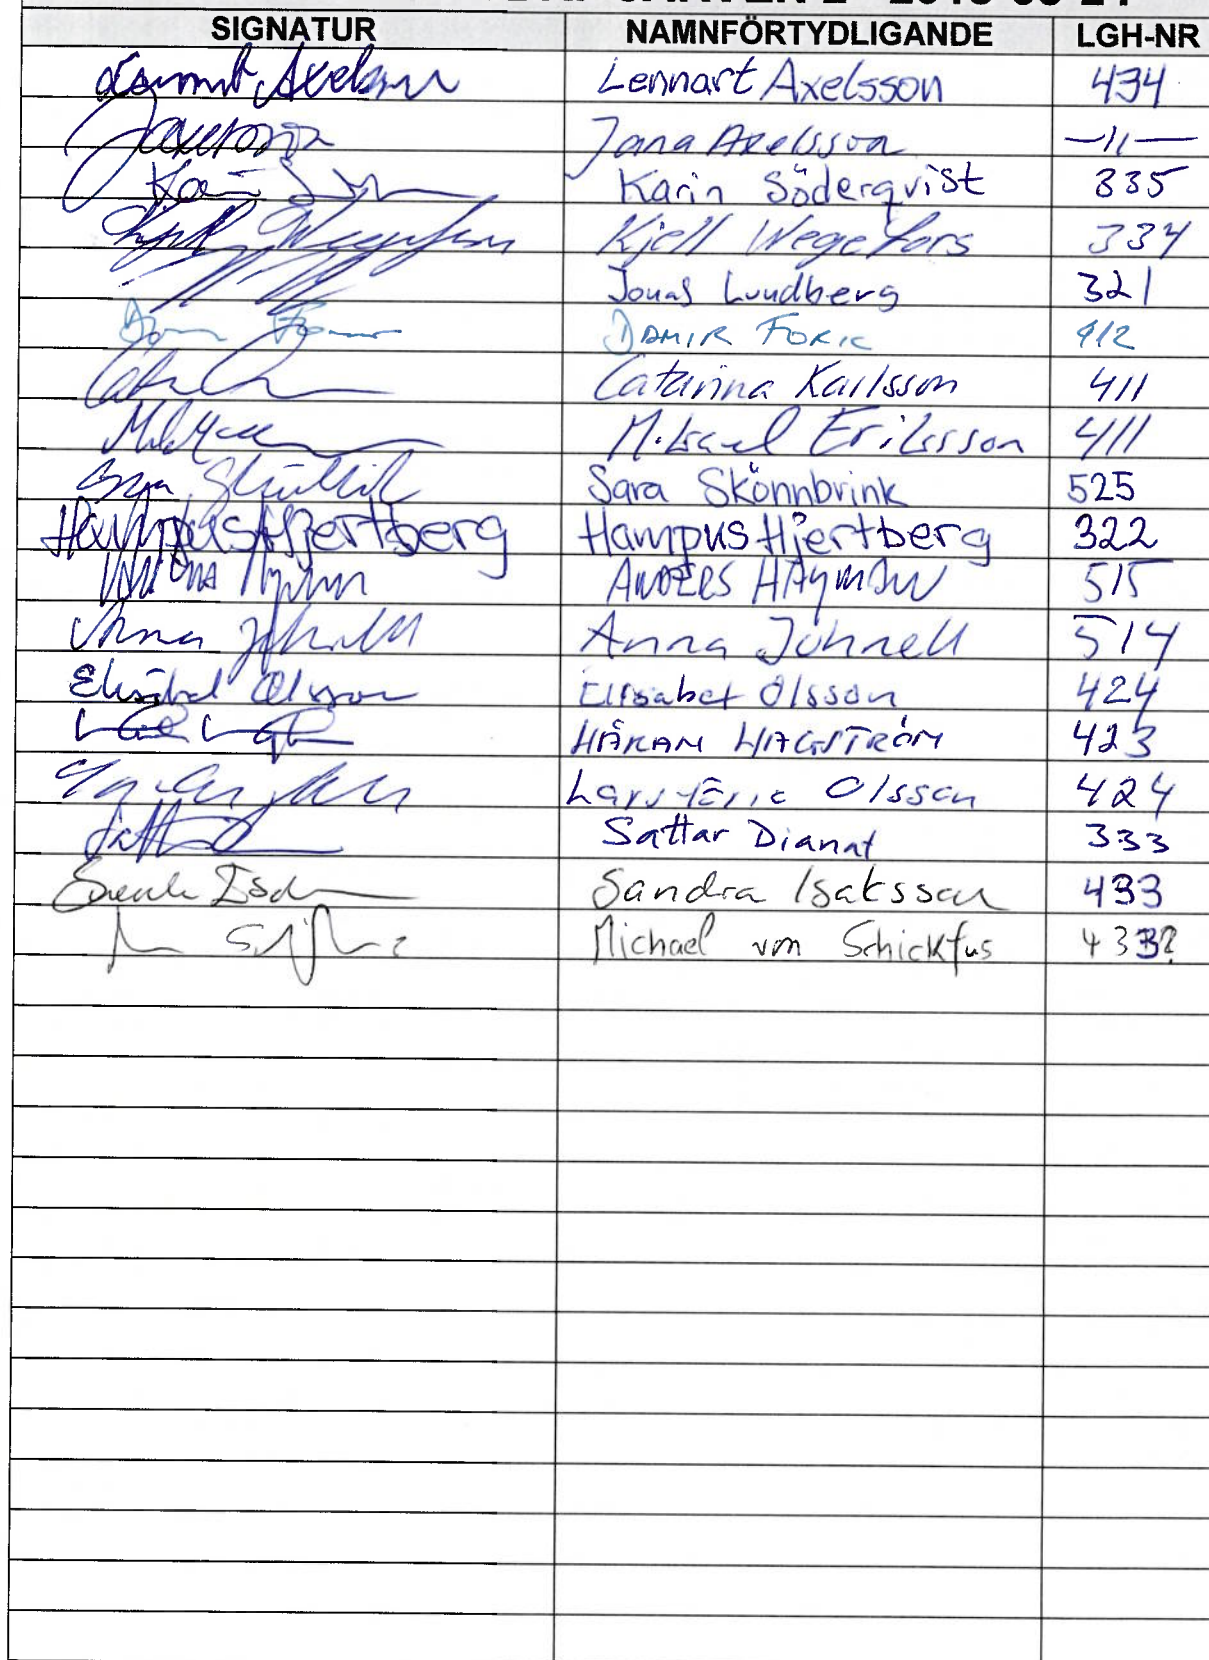 SIGNATUR NAMNFÖRTYDLIGANDE LGH-NR
Lennart Axelsson Lennart Axelsson 434
JAxelsson Jana Axelsson —11—
Karin Karin Söderqvist 335
Kjell Wegefors Kjell Wegefors 334
Jonas Lundberg 321
DAMIR FORIC 412
Catarina Karlsson 411
Mikael Eriksson 411
Sara Sara Skönnbrink 525
Hampus Hjertberg Hampus Hjertberg 322
ANDERS HAGMAN 515
Anna Johnell Anna Johnell 514
Elisabet Olsson Elisabet Olsson 424
HÅKAN HAGSTRÖM 423
Lars-Eric Olsson 424
Sattar Dianat 333
Sandra Isaksson 433
Michael von Schickfus 433?